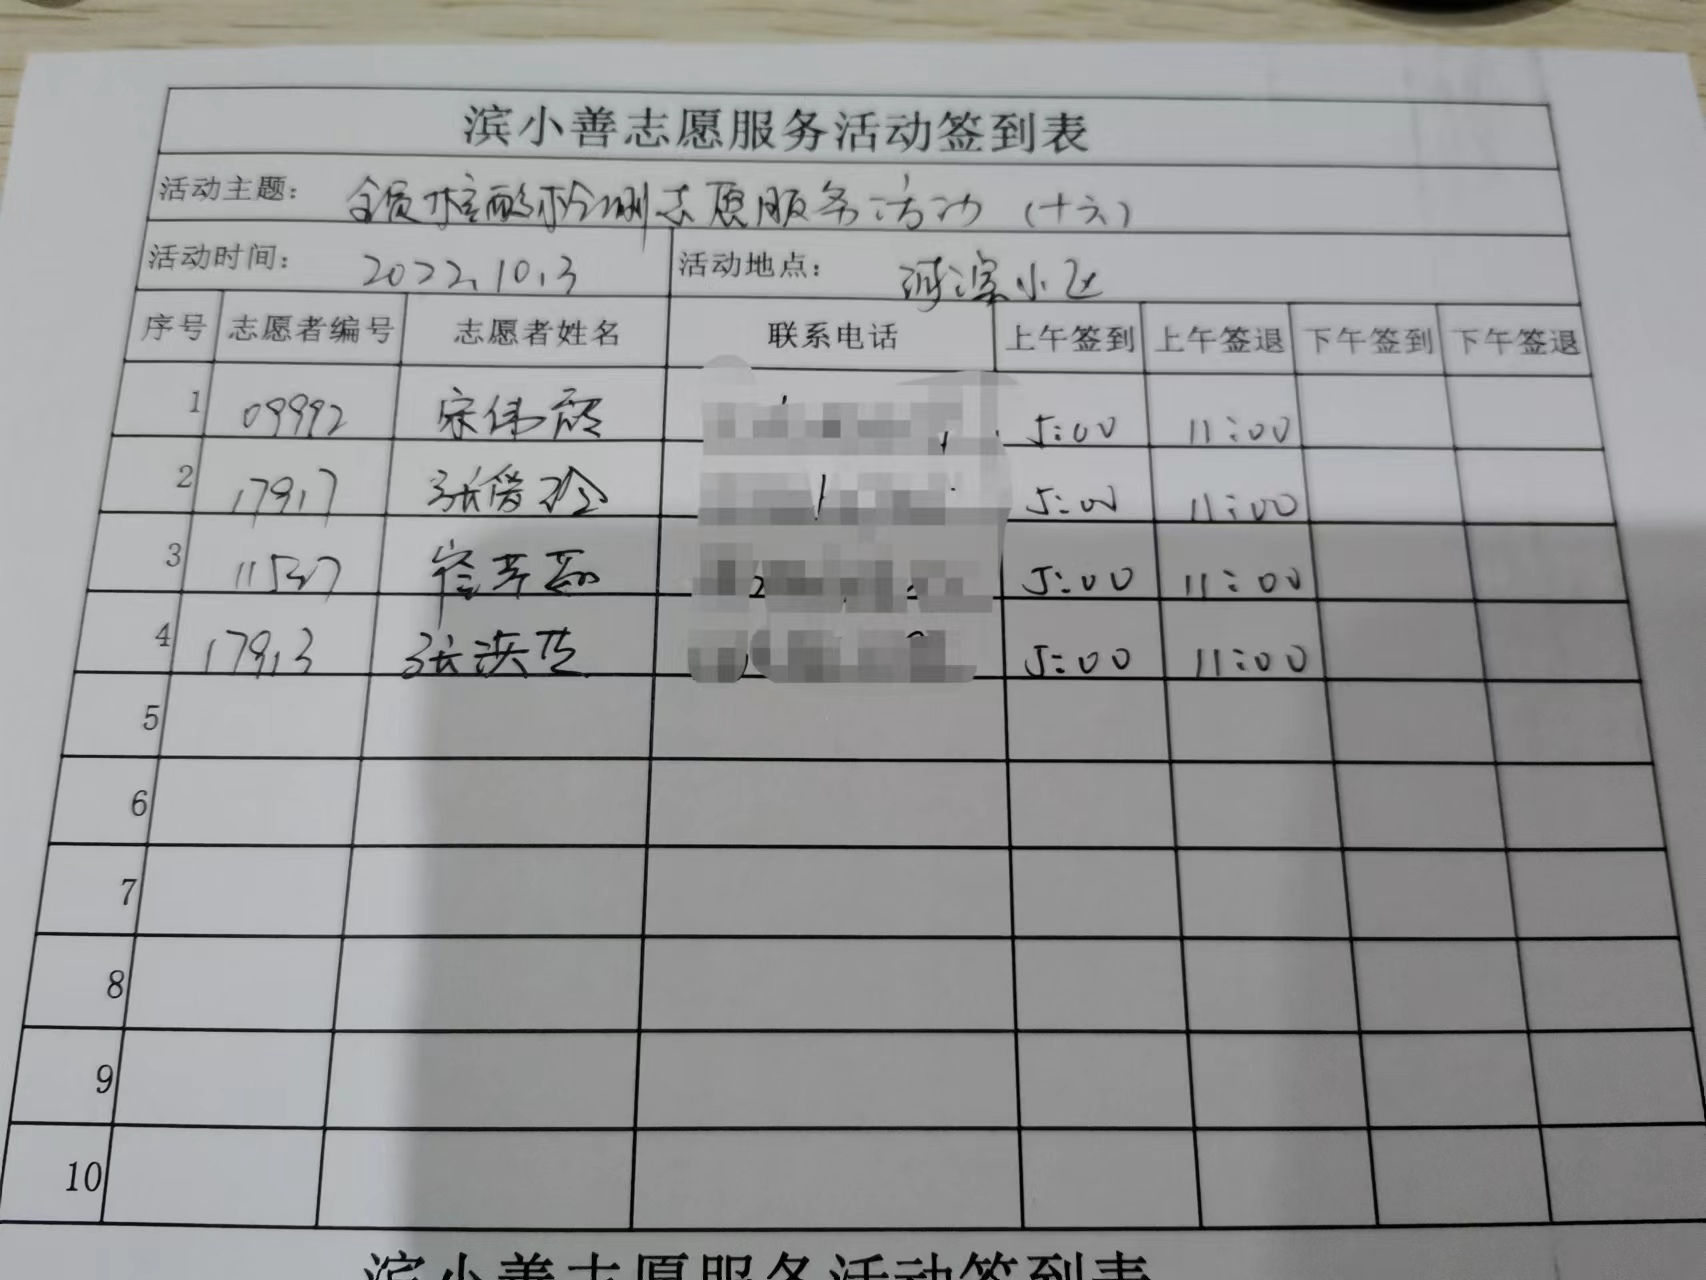 滨小善志愿服务活动签到表
活动主题： 全员核酸检测志愿服务活动（十六）
活动时间： 2022.10.3 活动地点： 河滨小区
序号 志愿者编号 志愿者姓名 联系电话 上午签到 上午签退 下午签到 下午签退
1 09992 宋伟 5:00 11:00
2 17917 张爱玲 5:00 11:00
3 11537 5:00 11:00
4 17913 张洪 5:00 11:00
5
6
7
8
9
10
滨小善志愿服务活动签到表